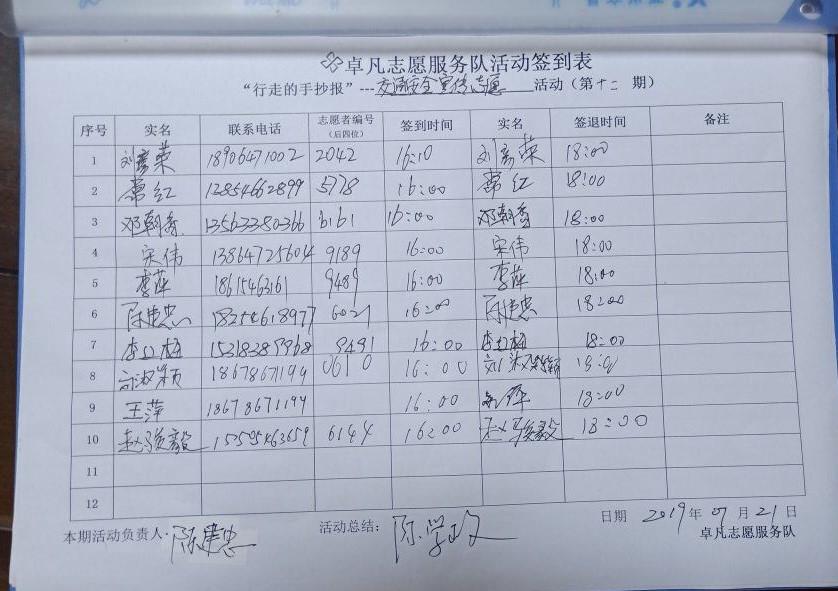 卓凡志愿服务队活动签到表
“行走的手抄报”---交通安全宣传志愿 活动（第十二 期）
序号 实名 联系电话 志愿者编号（后四位） 签到时间 实名 签退时间 备注
1 刘彦荣 18906471002 2042 16:10 刘彦荣 18:00
2 常红 12854662899 5778 16:00 常红 18:00
3 邓朝香 13563380366 6161 16:00 邓朝香 18:00
4 宋伟 13864725604 9189 16:00 宋伟 18:00
5 李萍 18615463161 9489 16:00 李萍 18:00
6 陈建忠 18254618977 6027 16:00 陈建忠 18:00
7 李红梅 15318389968 9491 16:00 李红梅 18:00
8 18678671199 0610 16:00
9 王萍 18678671199 16:00 18:00
10 赵骏毅 15505463659 6144 16:00 赵骏毅 18:00
11
12
本期活动负责人: 陈建忠 活动总结: 陈学政 日期 2019年07月21日
卓凡志愿服务队